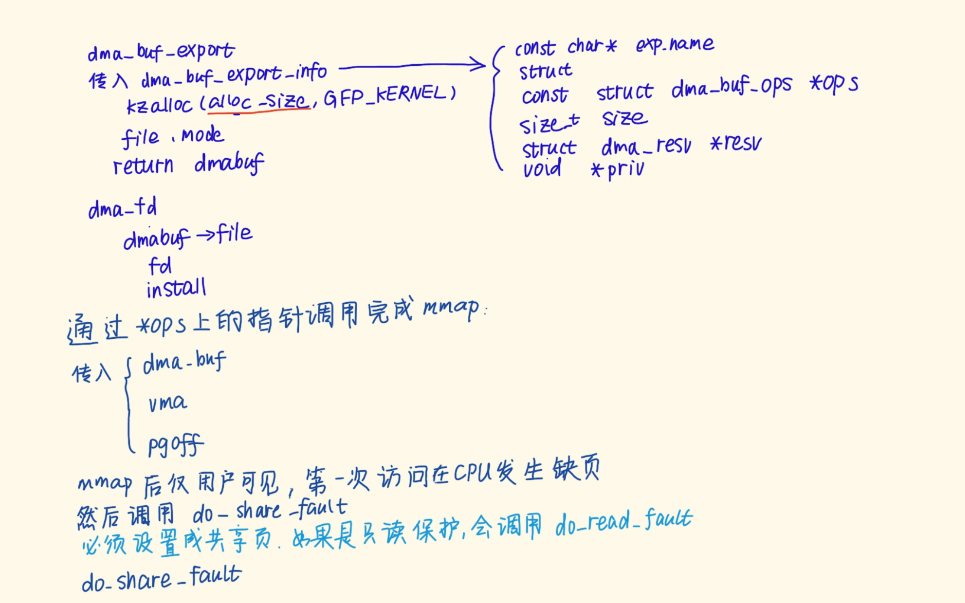 dma_buf_export
传入 dma_buf_export_info
kzalloc (alloc_size, GFP_KERNEL)
file . mode
return dmabuf
const char* exp_name
struct
const struct dma_buf_ops *ops
size_t size
struct dma_resv *resv
void *priv
dma_fd
dmabuf→file
fd
install
通过 *ops上的指针调用完成 mmap:
传入 { dma_buf
vma
pgoff
mmap 后仅用户可见, 第一次访问在CPU发生缺页
然后调用 do_share_fault
必须设置成共享页. 如果是只读保护, 会调用 do_read_fault
do_share_fault